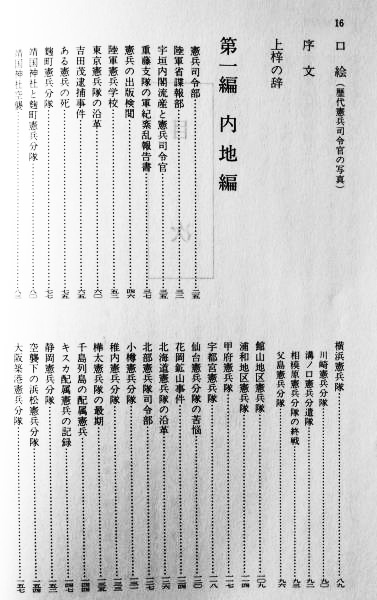 16
口絵(歴代憲兵司令官の写真)
序文
上梓の辞
第一編 内地編
憲兵司令部
陸軍省諜報部
宇垣内閣流産と憲兵司令官
重藤支隊の軍紀紊乱報告書
憲兵の出版検閲
陸軍憲兵学校
東京憲兵隊の沿革
吉田茂逮捕事件
ある憲兵の死
麹町憲兵分隊
靖国神社と麹町憲兵分隊
靖国神社空襲
横浜憲兵隊……八九
川崎憲兵分隊……九〇
溝ノ口憲兵分遣隊……九二
相模原憲兵分隊の終戦……九三
父島憲兵分隊……九六
館山地区憲兵隊……一〇九
浦和地区憲兵隊……一一四
甲府憲兵隊……一一七
宇都宮憲兵隊……一一八
仙台憲兵分隊の苦悩……一二〇
花岡鉱山事件……一二四
北海道憲兵隊の沿革……一二六
北部憲兵隊司令部……一二七
小樽憲兵分隊
稚内憲兵分隊
樺太憲兵隊の最期
千島列島の配属憲兵
キスカ配属憲兵の記録
静岡憲兵分隊
空襲下の浜松憲兵分隊
大阪築港憲兵分隊